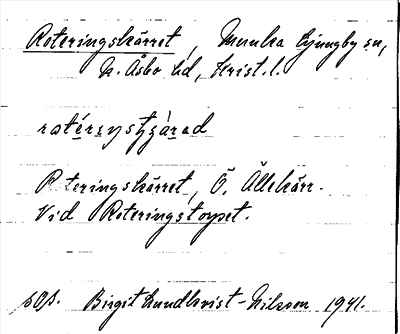 Roteringskärret, Munka Ljungby sn,
N. Åsbo hd, Krist. l.
Roteringskärret, Ö. Ällekärr.
Vid Roteringstorpet.
sOp. Birgit Lundkvist-Nilsson 1941.